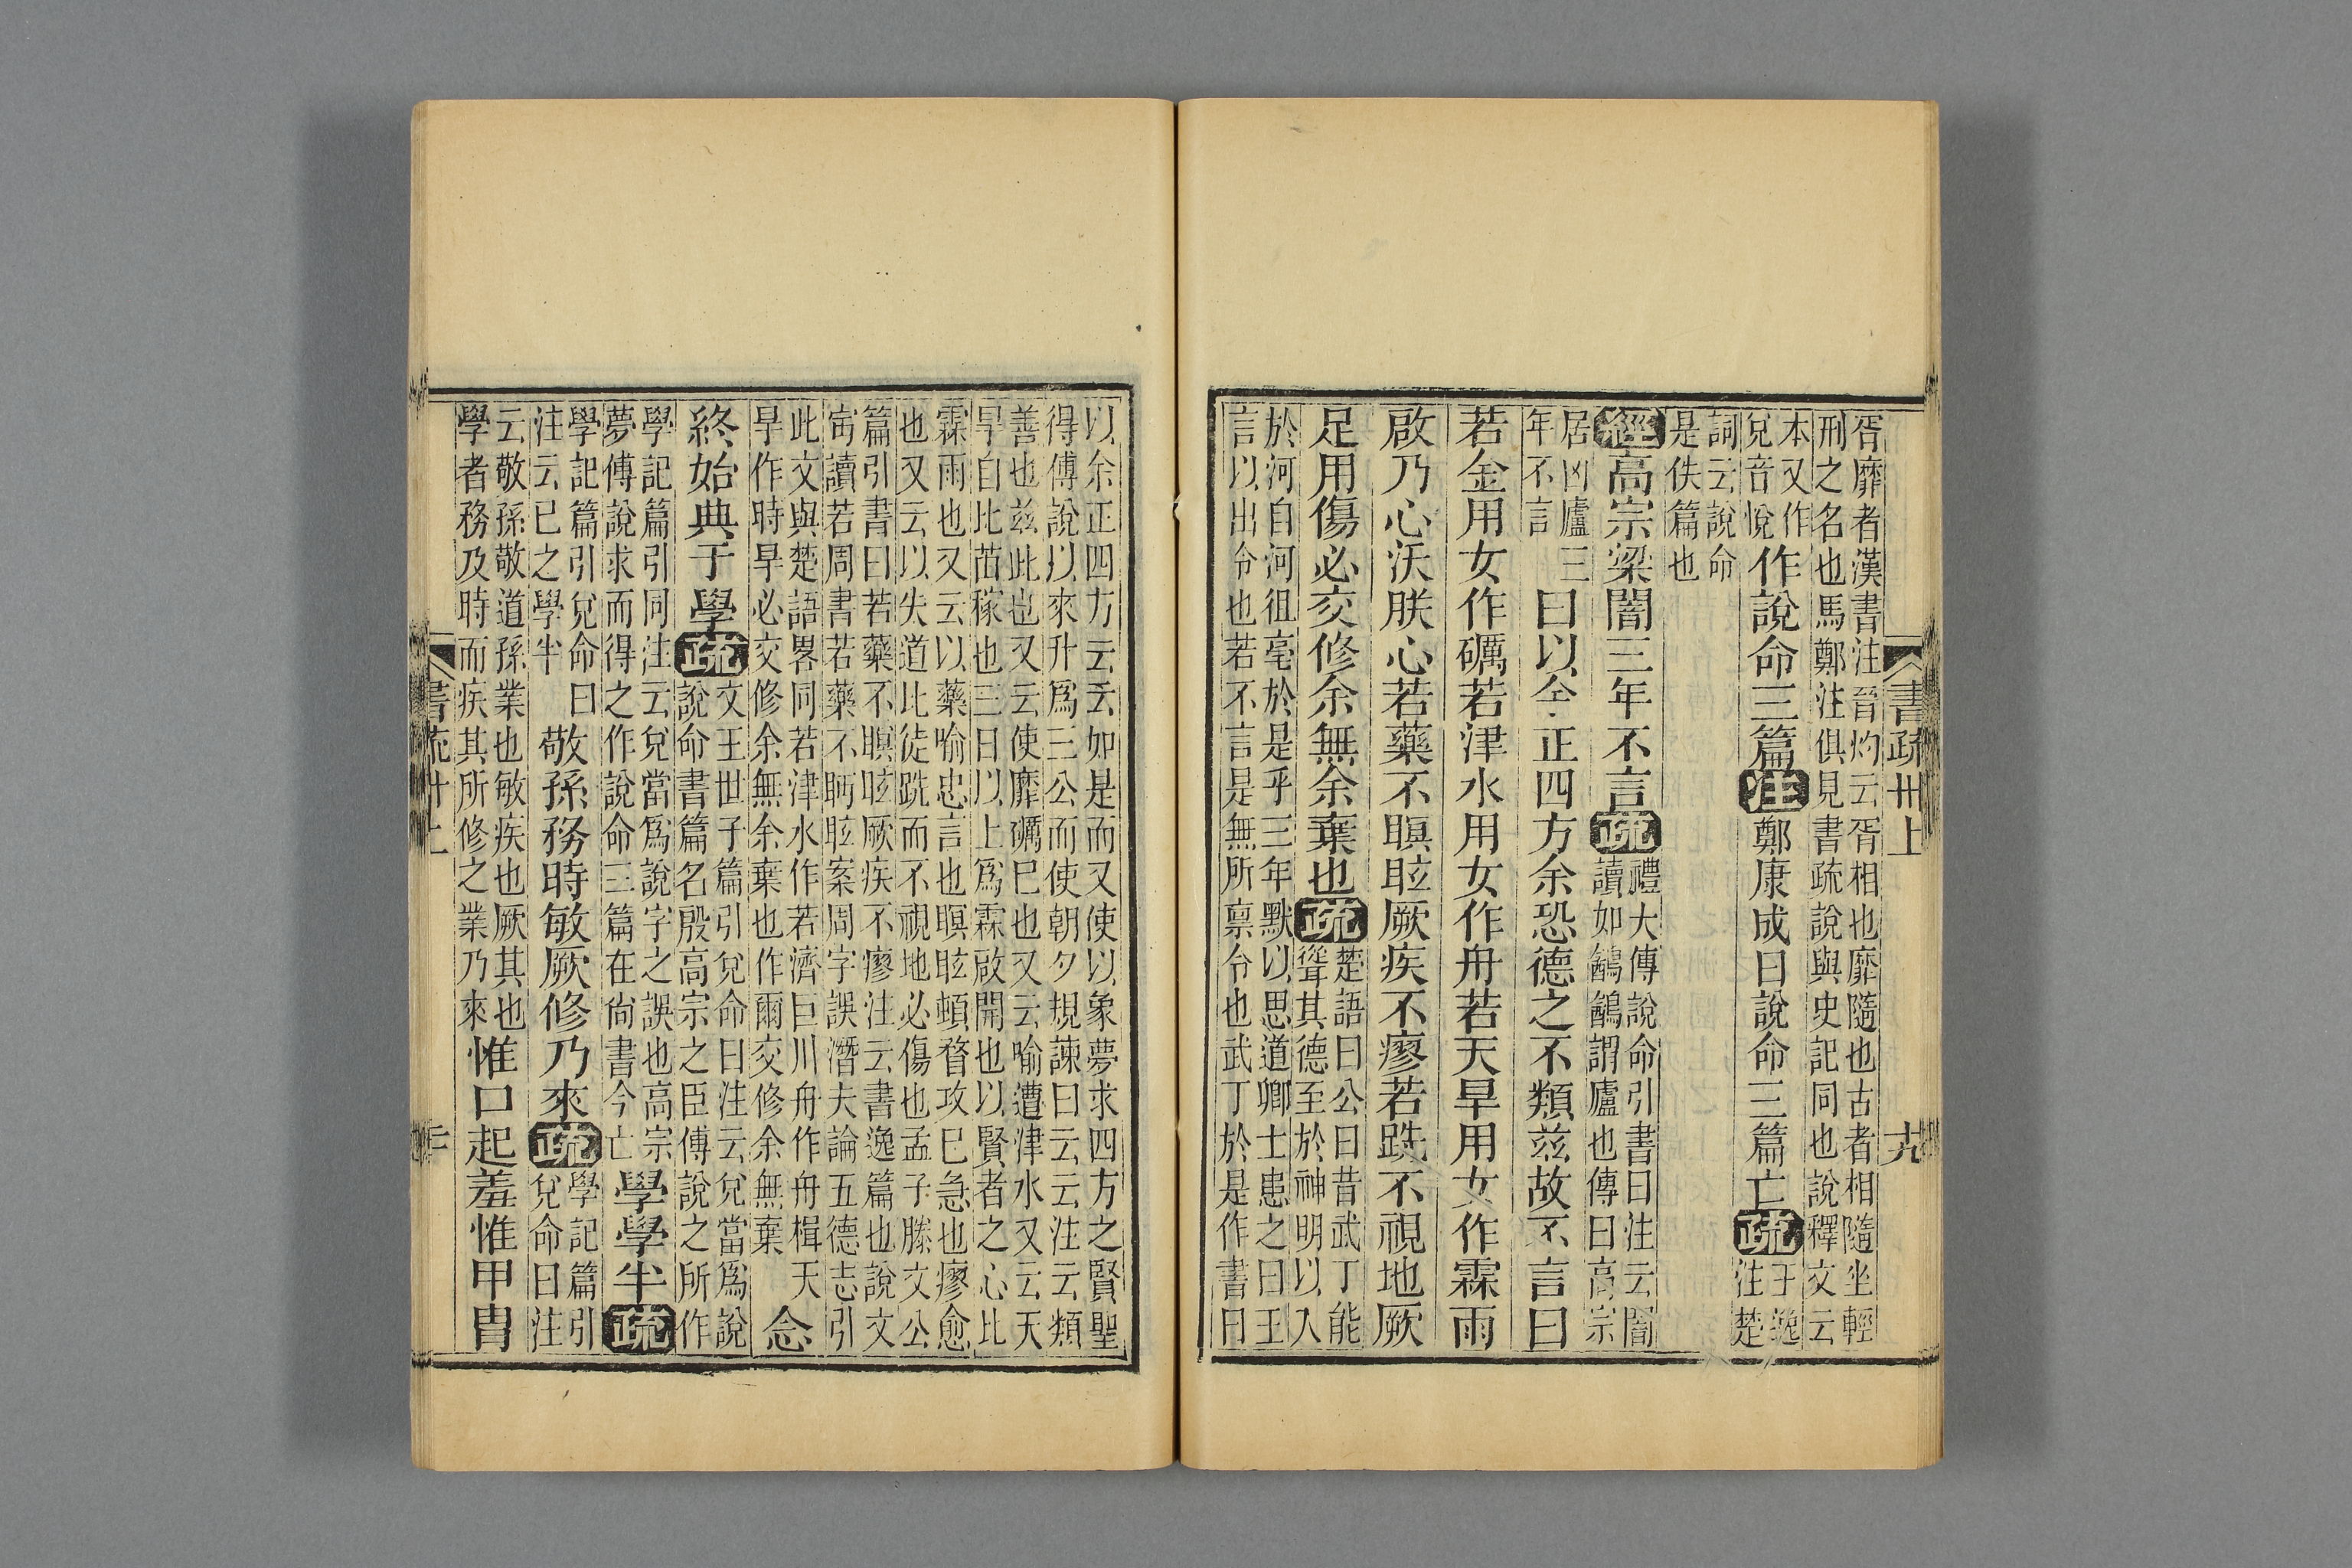 胥靡者漢書注晉灼云胥相也靡隨也古者相隨坐輕
刑之名也馬鄭注俱見書疏說與史記同也說釋文云
本又作
兌音悅
作說命三篇注鄭康成曰說命三篇亡疏
王逸
注楚
詞云說命
是佚篇也
經高宗梁闇三年不言疏
禮大傳說命引書曰注云闇
讀如鶉鶉謂廬也傳曰高宗
居凶廬三
年不言
曰以余正四方余恐德之不類茲故不言曰
若金用女作礪若津水用女作舟若天旱用女作霖雨
啟乃心沃朕心若藥不瞑眩厥疾不瘳若跣不視地厥
足用傷必交修余無余棄也疏
楚語曰公曰昔武丁能
聳其德至於神明以入
於河自河徂亳於是乎三年默以思道卿士患之曰王
言以出令也若不言是無所禀令也武丁於是作書曰
書疏卅上
十九
以余正四方云云如是而又使以象夢求四方之賢聖
得傅說以來升爲三公而使朝夕規諫曰云云注云類
善也茲此也又云使靡礪巳也又云喻遭津水又云天
旱自比苗稼也三日以上爲霖啟開也以賢者之心比
霖雨也又云以藥喻忠言也瞑眩頓瞀攻巳急也瘳愈
也又云以失道比徒跣而不視地必傷也孟子滕文公
篇引書曰若藥不瞑眩厥疾不瘳注云書逸篇也說文
㝢讀若周書若藥不眄眩案周字誤潛夫論五德志引
此文與楚語畧同若津水作若濟巨川舟作舟楫天
旱作時旱必交修余無余棄也作爾交修余無棄
念
終始典于學疏
文王世子篇引兌命曰注云兌當爲說
說命書篇名殷高宗之臣傅說之所作
學記篇引同注云兌當爲說字之誤也高宗
夢傅說求而得之作說命三篇在尙書今亡
學學半疏
學記篇引兌命曰
注云已之學半
敬孫務時敏厥修乃來疏
學記篇引
兌命曰注
云敬孫敬道孫業也敏疾也厥其也
學者務及時而疾其所修之業乃來
惟口起羞惟甲胄
書疏卅上